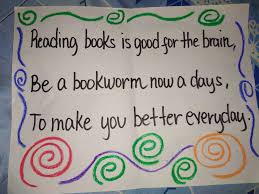 Reading books is good for the brain,
Be a bookworm now a days,
To make you better everyday.